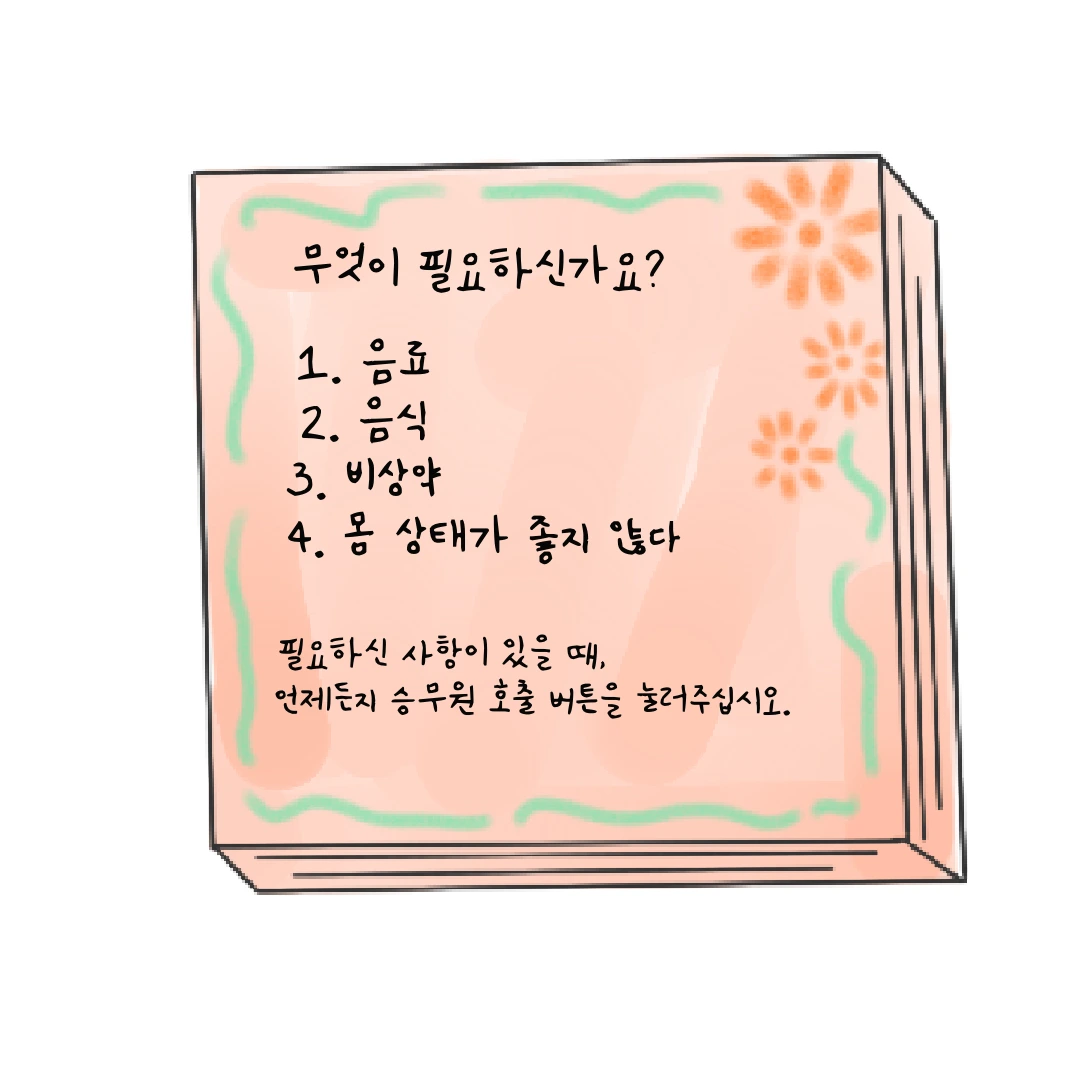 무엇이 필요하신가요?
1. 음료
2. 음식
3. 비상약
4. 몸 상태가 좋지 않다
필요하신 사항이 있을 때,
언제든지 승무원 호출 버튼을 눌러주십시오.